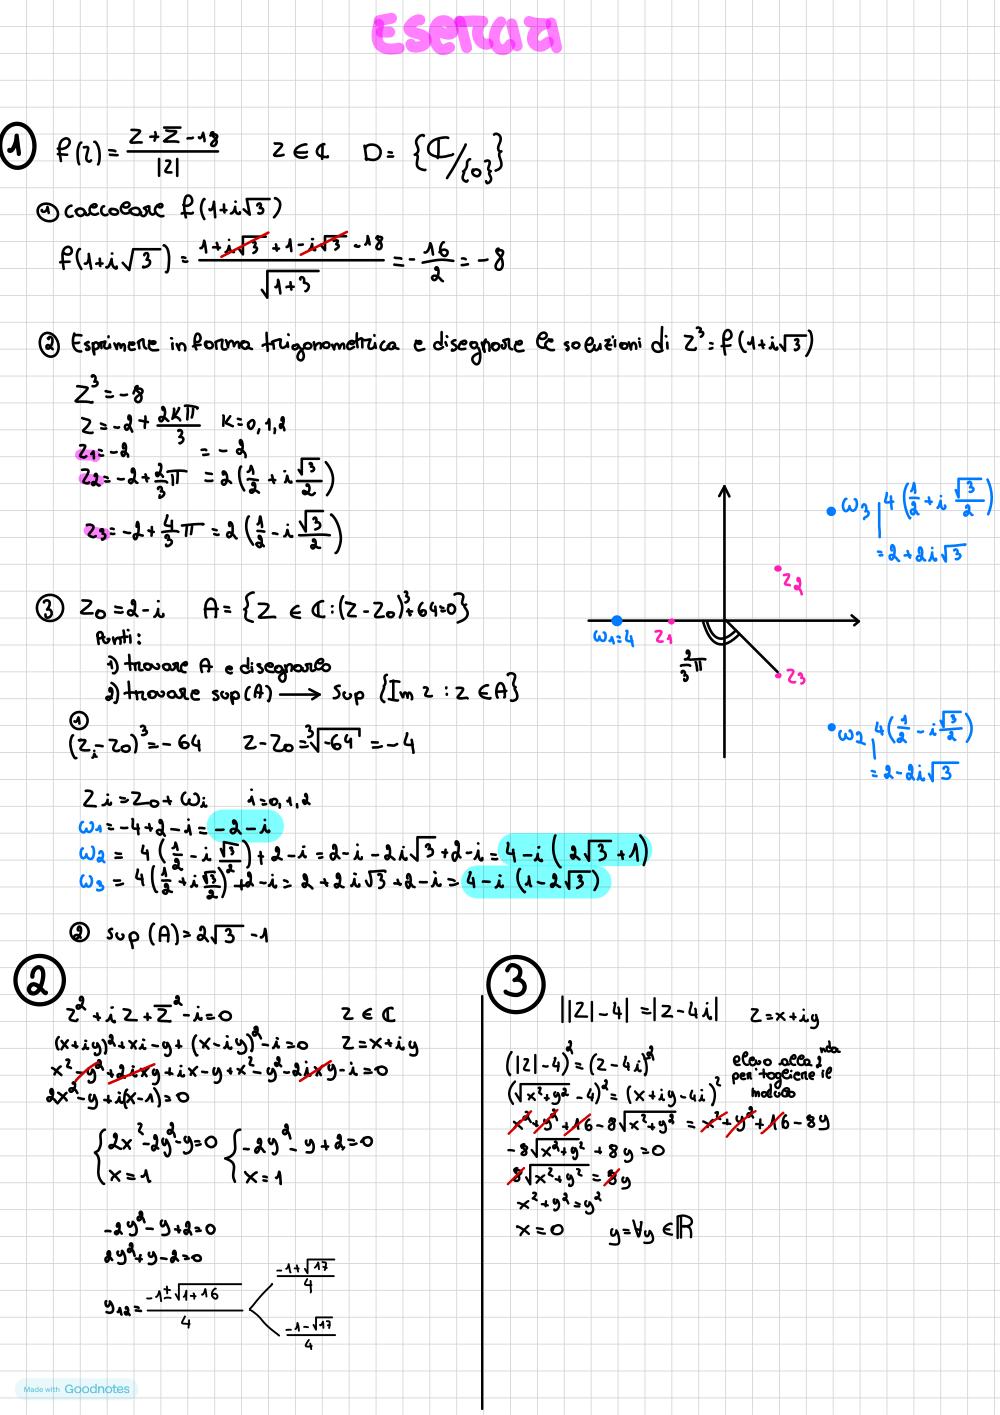 Esercizi
1 f(z) = (z + z̅ - 18)/|z| z ∈ ℂ D = {ℂ/{0}}
① calcolare f(1+i√3)
f(1+i√3) = (1+i√3+1-i√3-18)/√(1+3) = -16/2 = -8
② Esprimere in forma trigonometrica e disegnare le soluzioni di z³ = f(1+i√3)
z³ = -8
z = -2 + 2kπ/3 k=0,1,2
z₁ = -2 = -2
z₂ = -2 + 2/3 π = 2(1/2 + i √3/2)
z₃ = -2 + 4/3 π = 2(1/2 - i √3/2)
ω₃ 4(1/2 + i √3/2)
= 2+2i√3
z₂
ω₁=4 z₁
2/3 π
z₃
ω₂ 4(1/2 - i √3/2)
= 2-2i√3
③ z₀ = 2-i A = {z ∈ ℂ : (z-z₀)³+64=0}
Punti:
1) trovare A e disegnarlo
2) trovare sup(A) → sup {Im z : z ∈ A}
①
(zᵢ-z₀)³ = -64 z-z₀ = ³√-64 = -4
zᵢ = z₀ + ωᵢ i=0,1,2
ω₁ = -4+2-i = -2-i
ω₂ = 4(1/2 - i √3/2) + 2-i = 2-i-2i√3+2-i = 4-i(2√3+1)
ω₃ = 4(1/2 + i √3/2) + 2-i = 2+2i√3+2-i = 4-i(1-2√3)
② sup(A) = 2√3 - 1
2
z² + iz + z̅² - i = 0 z ∈ ℂ
(x+iy)² + xi - y + (x-iy)² - i = 0 z = x+iy
x² - y² + 2ixy + ix - y + x² - y² - 2ixy - i = 0
2x² - y + i(x-1) = 0
{2x²-2y²-y=0 {-2y²-y+2=0
x=1 x=1
-2y²-y+2=0
2y²+y-2=0
y₁₂ = (-1±√(1+16))/4
(-1+√17)/4
(-1-√17)/4
3
||z|-4| = |z-4i| z = x+iy
(|z|-4)² = (z-4i)² elevo alla 2nda per togliere il modulo
(√(x²+y²) - 4)² = (x+iy-4i)²
x²+y²+16-8√(x²+y²) = x²+y²+16-8y
-8√(x²+y²) + 8y = 0
8√(x²+y²) = 8y
x²+y²=y²
x=0 y=∀y ∈ ℝ
Made with Goodnotes